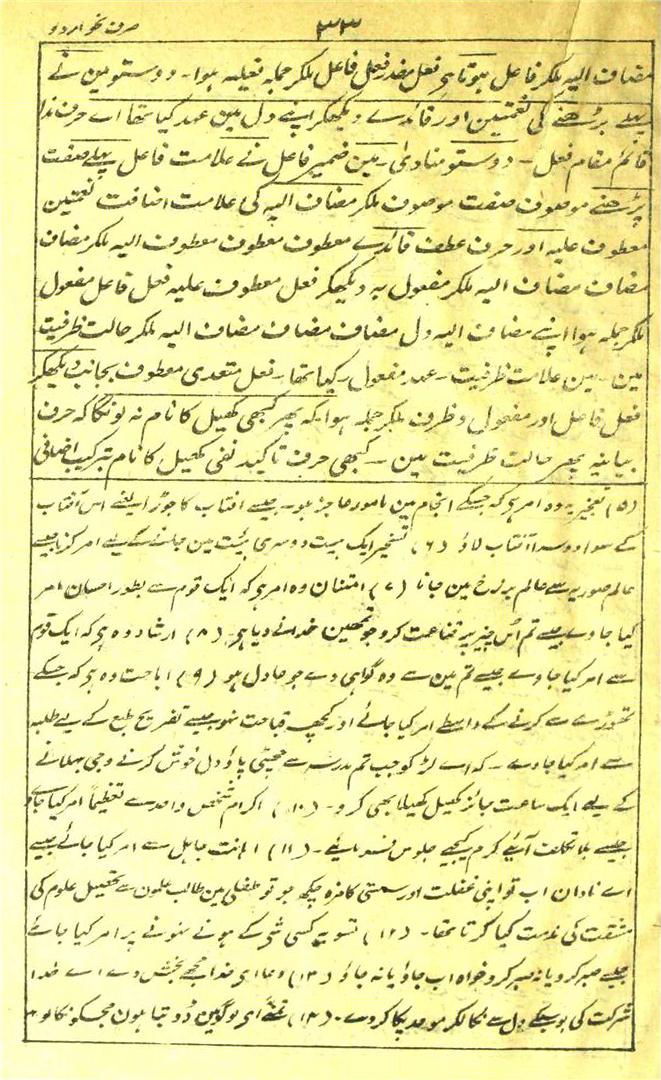 صرف نحو اردو
۳۳
مضاف الیہ ملکر فاعل ہوتا ہی فعل مقدر فعل فاعل ملکر جملہ فعلیہ ہوا۔ دوستو مین نے
پہلے پڑھنے کی نعمتین اور فائدے دیکھکر اپنے دل مین عہد کیا تھا اے حرف ندا
قائم مقام فعل۔ دوستو منادیٰ۔ مین ضمیر فاعل نے علامت فاعل پہلے صفت
پڑھنے موصوف صفت موصوف ملکر مضاف الیہ کی علامت اضافت نعمتین
معطوف علیہ اور حرف عطف فائدے معطوف معطوف معطوف الیہ ملکر مضاف
مضاف مضاف الیہ ملکر مفعول بہ دیکھکر فعل معطوف علیہ فعل فاعل مفعول
ملکر جملہ ہوا اپنے مضاف الیہ دل مضاف مضاف مضاف الیہ ملکر حالت ظرفیت
مین۔ مین علامت ظرفیت۔ عہد مفعول۔ کیا تھا۔ فعل متعدی معطوف بجانب دیکھکر
فعل فاعل اور مفعول و ظرف ملکر جملہ ہوا۔ کہ پھر کبھی کھیل کا نام نہ لونگا کہ حرف
بیانیہ پھر حالت ظرفیت مین۔ کبھی حرف تاکید نفی کھیل کا نام بترکیب اضافی
(۵) تعجیز یہ وہ امر ہی کہ جسکے انجام مین مامور عاجز ہو۔ جیسے آفتاب کا جوڑا یعنے اس آفتاب
کے سوا دوسرا آفتاب لاؤ (۶) تسخیر ایک ہیئت دوسری ہیئت مین جانے کے لیے امر کرنا جیسے
عالم صوریہ سے عالم برزخ مین جانا (۷) امتنان وہ امر ہی کہ ایک قوم سے بطور احسان امر
کیا جاوے جیسے تم اُس چیز پر قناعت کرو جو تمھین خدا نے دیا ہی۔ (۸) ارشاد وہ ہی کہ ایک قوم
سے امر کیا جاوے جیسے تم مین سے وہ گواہی دے جو عادل ہو (۹) اباحت وہ ہی کہ جسکے
تھوڑے سے کرنے کے واسطے امر کیا جائے اور کچھ قباحت نہو جیسے تفریح طبع کے لیے طلبہ
سے امر کیا جاوے۔ کہ اے لڑکو جب تم مدرسہ سے چھٹی پاؤ دل خوش کرنے و جی بہلانے
کے لیے ایک ساعت جائز کھیل کھیلا بھی کرو۔ (۱۰) اکرام شخص واحد سے تعظیماً امر کیا جاوے
جیسے بلا تکلف آئیے کرم کیجیے جلوس فرمائیے۔ (۱۱) اہانت جاہل سے امر کیا جائے جیسے
اے نادان اب تو اپنی غفلت اور سستی کا مزہ چکھ جو تو طفلی مین طالب علمون سے تحصیل علوم کی
مشقت کی مذمت کیا کرتا تھا۔ (۱۲) تسویہ کسی شی کے ہونے نہونے پر امر کیا جائے
جیسے صبر کرو یا نہ صبر کرو خواہ اب جاؤ یا نہ جاؤ (۱۳) دعا ای خدا مجھے بخش دے اے خدا
شرکت کی بو میرے دل سے نکالکر موحد پکا کردے۔ (۱۴) تمنی ای لوگو مین ڈوبتا ہون مجکو نکالو